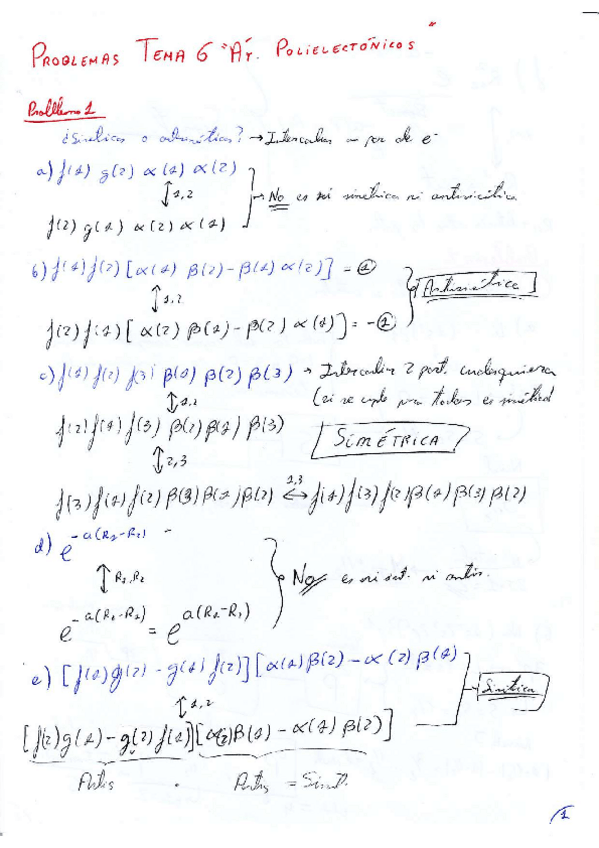 PROBLEMAS TEMA 6 "Át. POLIELECTÓNICOS"
Problema 1
¿Simétricas o antisimétricas? → Intercambiar un par de e⁻
a) f(1) g(2) α(1) α(2)
↕ 1,2
No es ni simétrica ni antisimétrica
f(2) g(1) α(2) α(1)
b) f(1) f(2) [α(1) β(2) – β(1) α(2)] = ①
↕ 1,2
Antisimétrica
f(2) f(1) [α(2) β(1) – β(2) α(1)] = –①
c) f(1) f(2) f(3) β(1) β(2) β(3) → Intercambiar 2 part. cualesquiera
(si se cumple para todas es simétrica)
↕ 1,2
f(2) f(1) f(3) β(2) β(1) β(3)
SIMÉTRICA
↕ 2,3
f(3) f(1) f(2) β(3) β(1) β(2) ⟷ 1,3 f(1) f(3) f(2) β(1) β(3) β(2)
d) e^-a(R₁-R₂)
↕ R₁,R₂
No es ni sim. ni antis.
e^-a(R₂-R₁) = e^a(R₁-R₂)
e) [f(1)g(2) – g(1) f(2)] [α(1)β(2) – α(2) β(1)]
↕ 1,2
Simétrica
[f(2)g(1) – g(2) f(1)] [α(2)β(1) – α(1) β(2)]
Antis · Antis = Simét.
1